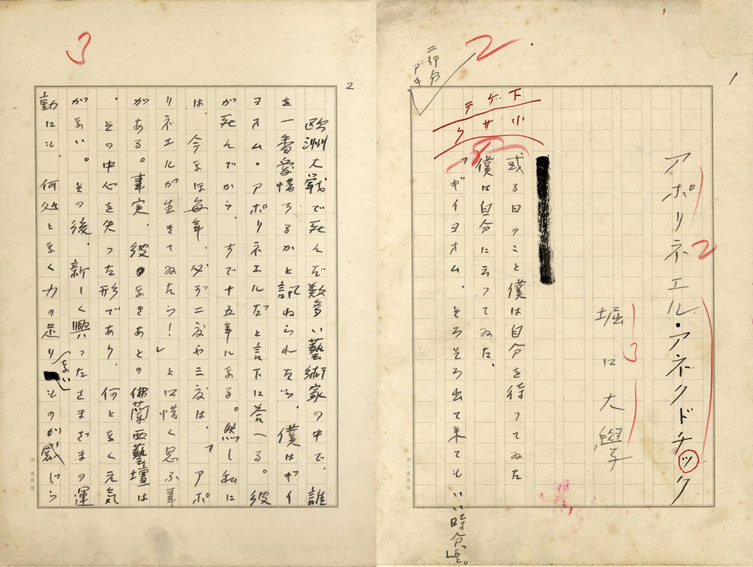 アポリネエル・アネクドチック
堀口大學
或る日のこと僕は自分を待つてゐた
僕は自分に云つてみた、
「ギイヨオム、そろそろ出て来てもいい時分だ」。
下ゲテ
小サク
二行分アキ
2
2
3
1
3
2
欧洲大戦で死んだ数多い藝術家の中で、誰
を一番愛惜するかと訊ねられたら、僕はギイ
ヨオム・アポリネエルだと言下に答へる。彼
が死んでから、すでに十五年になる。然し私に
は、今なほ毎年、必ず二度や三度は、「アポ
リネエルが生きてゐたら!」と口惜く思ふ事
がある。事実、彼のなきあとの佛蘭西藝壇は
、その中心を失つた形であり、何となく元気
がない。その後、新しく興つたさまざまの運
動にも、何処となく力の足りないものが感じら